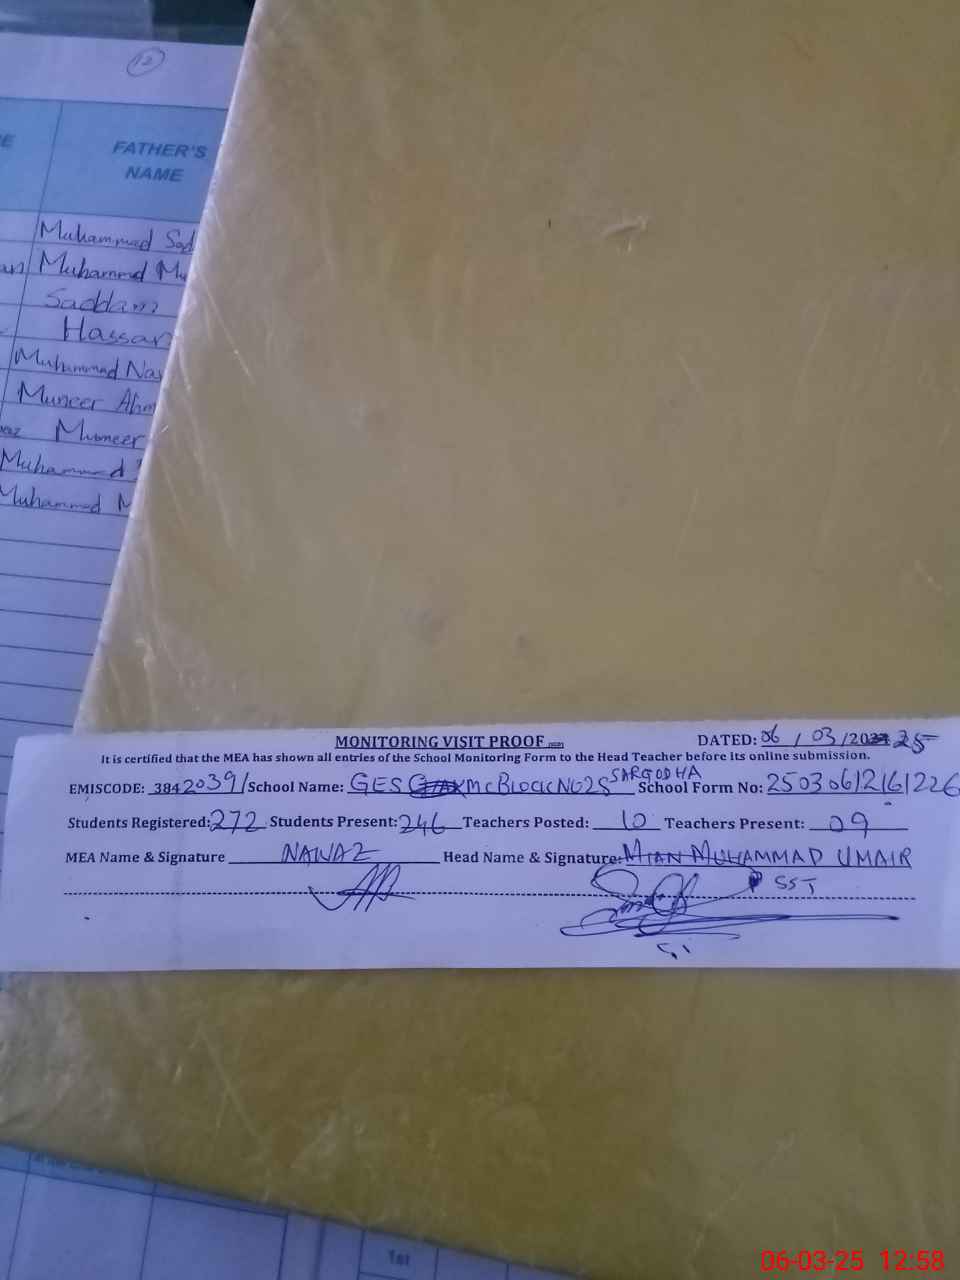 12
FATHER'S
NAME
Muhammad
Muhammd
Saddam
Hassan
Muhammad
Muneer
Muneer
Muhammad
Muhammad
MONITORING VISIT PROOF
DATED: 06 / 03 /20 25
It is certified that the MEA has shown all entries of the School Monitoring Form to the Head Teacher before its online submission.
EMISCODE: 384 2039/ School Name: GES MC BLOCK NO 25 SARGODHA School Form No:
Students Registered: 272 Students Present: 246 Teachers Posted: 10 Teachers Present: 09
MEA Name & Signature NAWAZ Head Name & Signature: MIAN MUHAMMAD UMAIR
SST
1st
06-03-25 12:58